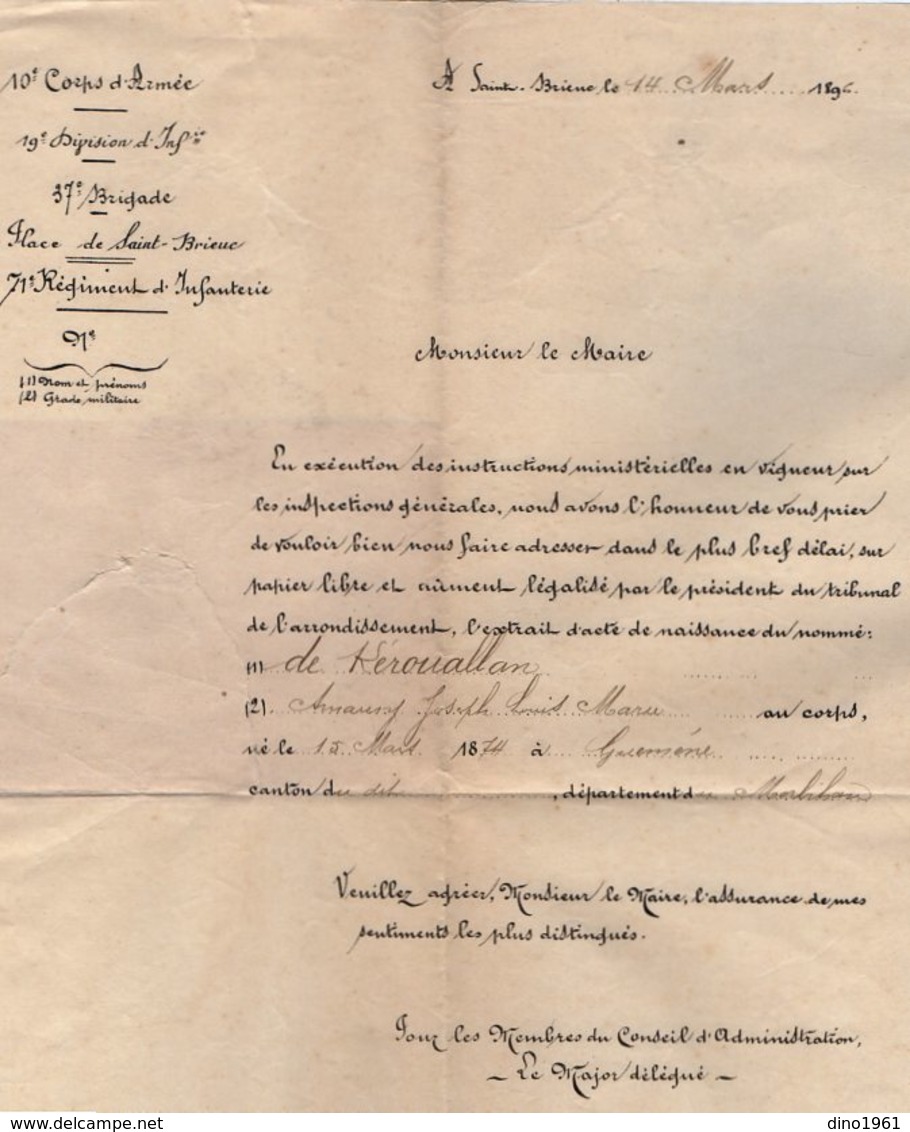 10e Corps d'Armée
A Saint-Brieuc, le 14 Mars 1896
19e Division d'Infie
37e Brigade
Place de Saint-Brieuc
71e Régiment d'Infanterie
No
(1) Nom et prénoms
(2) Grade militaire
Monsieur le Maire
En exécution des instructions ministérielles en vigueur sur
les inspections générales, nous avons l'honneur de vous prier
de vouloir bien nous faire adresser dans le plus bref délai, sur
papier libre et dûment légalisé par le président du tribunal
de l'arrondissement, l'extrait d'acte de naissance du nommé:
(1) de Kérouallan
(2) Amaury Joseph Louis Marie au corps,
né le 15 Mars 1874 à Guemené
canton du dit, département du Morbihan
Veuillez agréer, Monsieur le Maire, l'assurance de mes
sentiments les plus distingués.
Pour les Membres du Conseil d'Administration,
- Le Major délégué -
dino1961